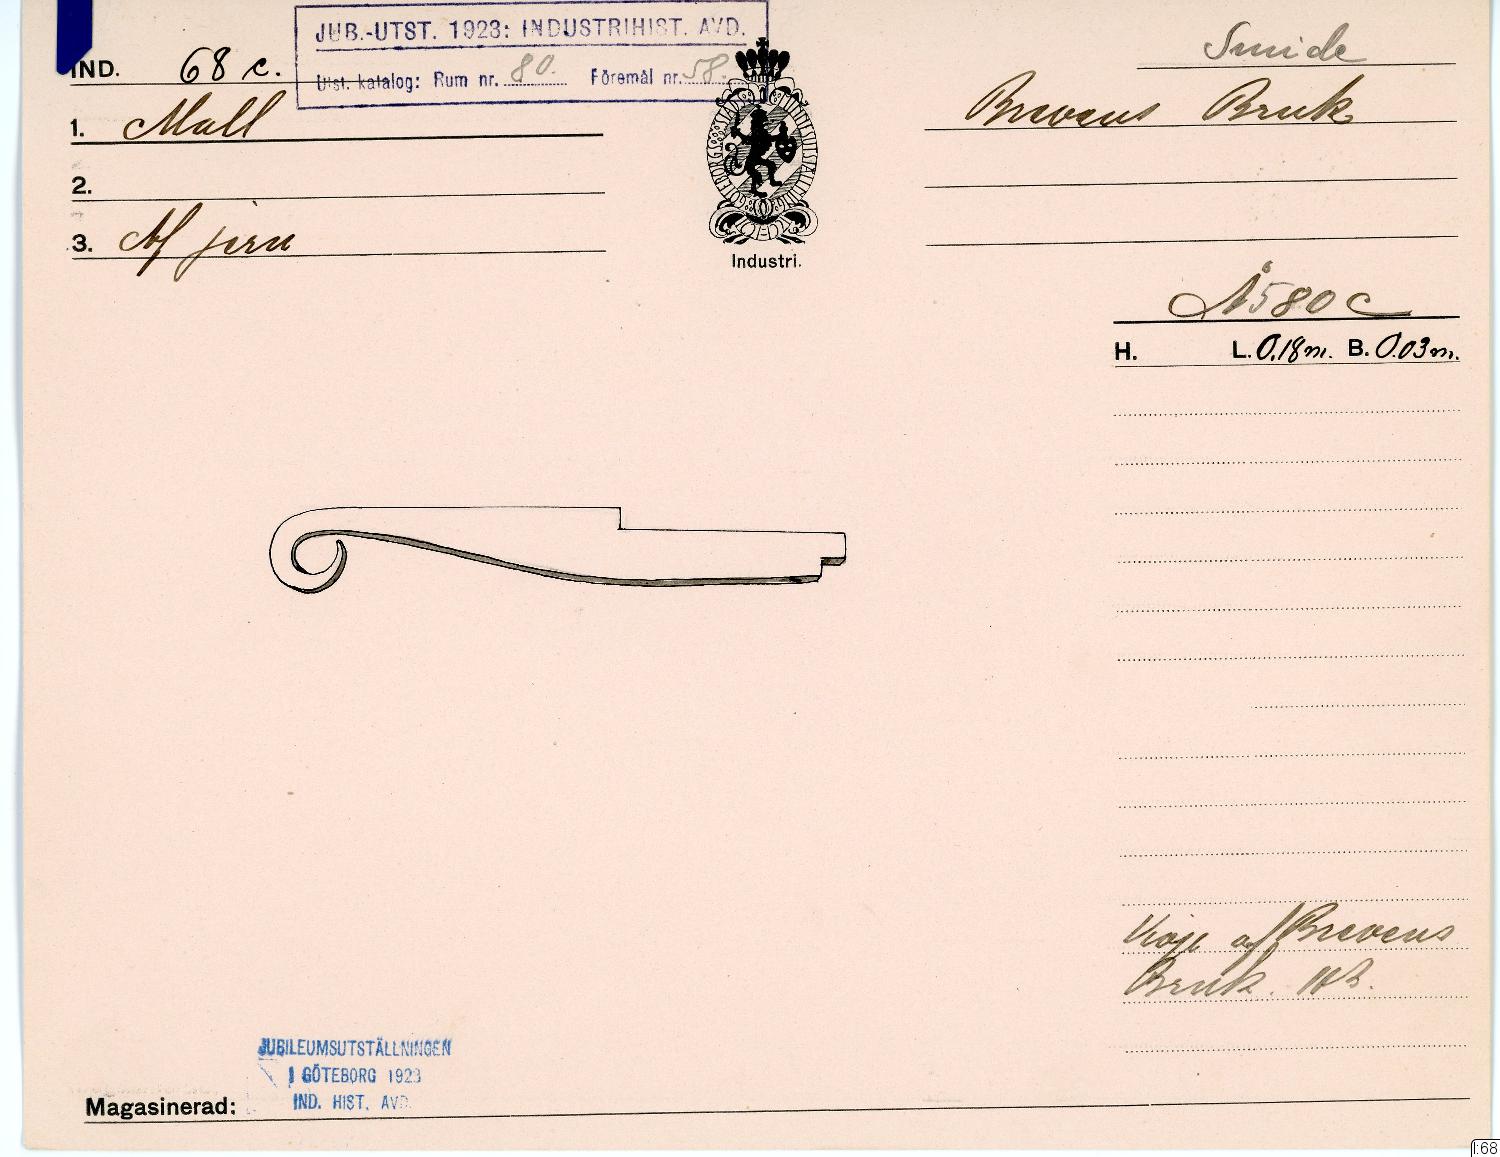 JUB.-UTST. 1923: INDUSTRIHIST. AVD.
Utst. katalog: Rum nr. 80. Föremål nr. 58.
IND. 68 c.
1. Mall
2.
3. Af jern
GÖTEBORGS STADS MINNESUTSTÄLLNING
Industri.
Smide
Brevens Bruk
Å 580 c
H. L. 0.18 m. B. 0.03 m.
af Brevens
Bruk.
JUBILEUMSUTSTÄLLNINGEN
I GÖTEBORG 1923
IND. HIST. AVD.
Magasinerad:
I:68